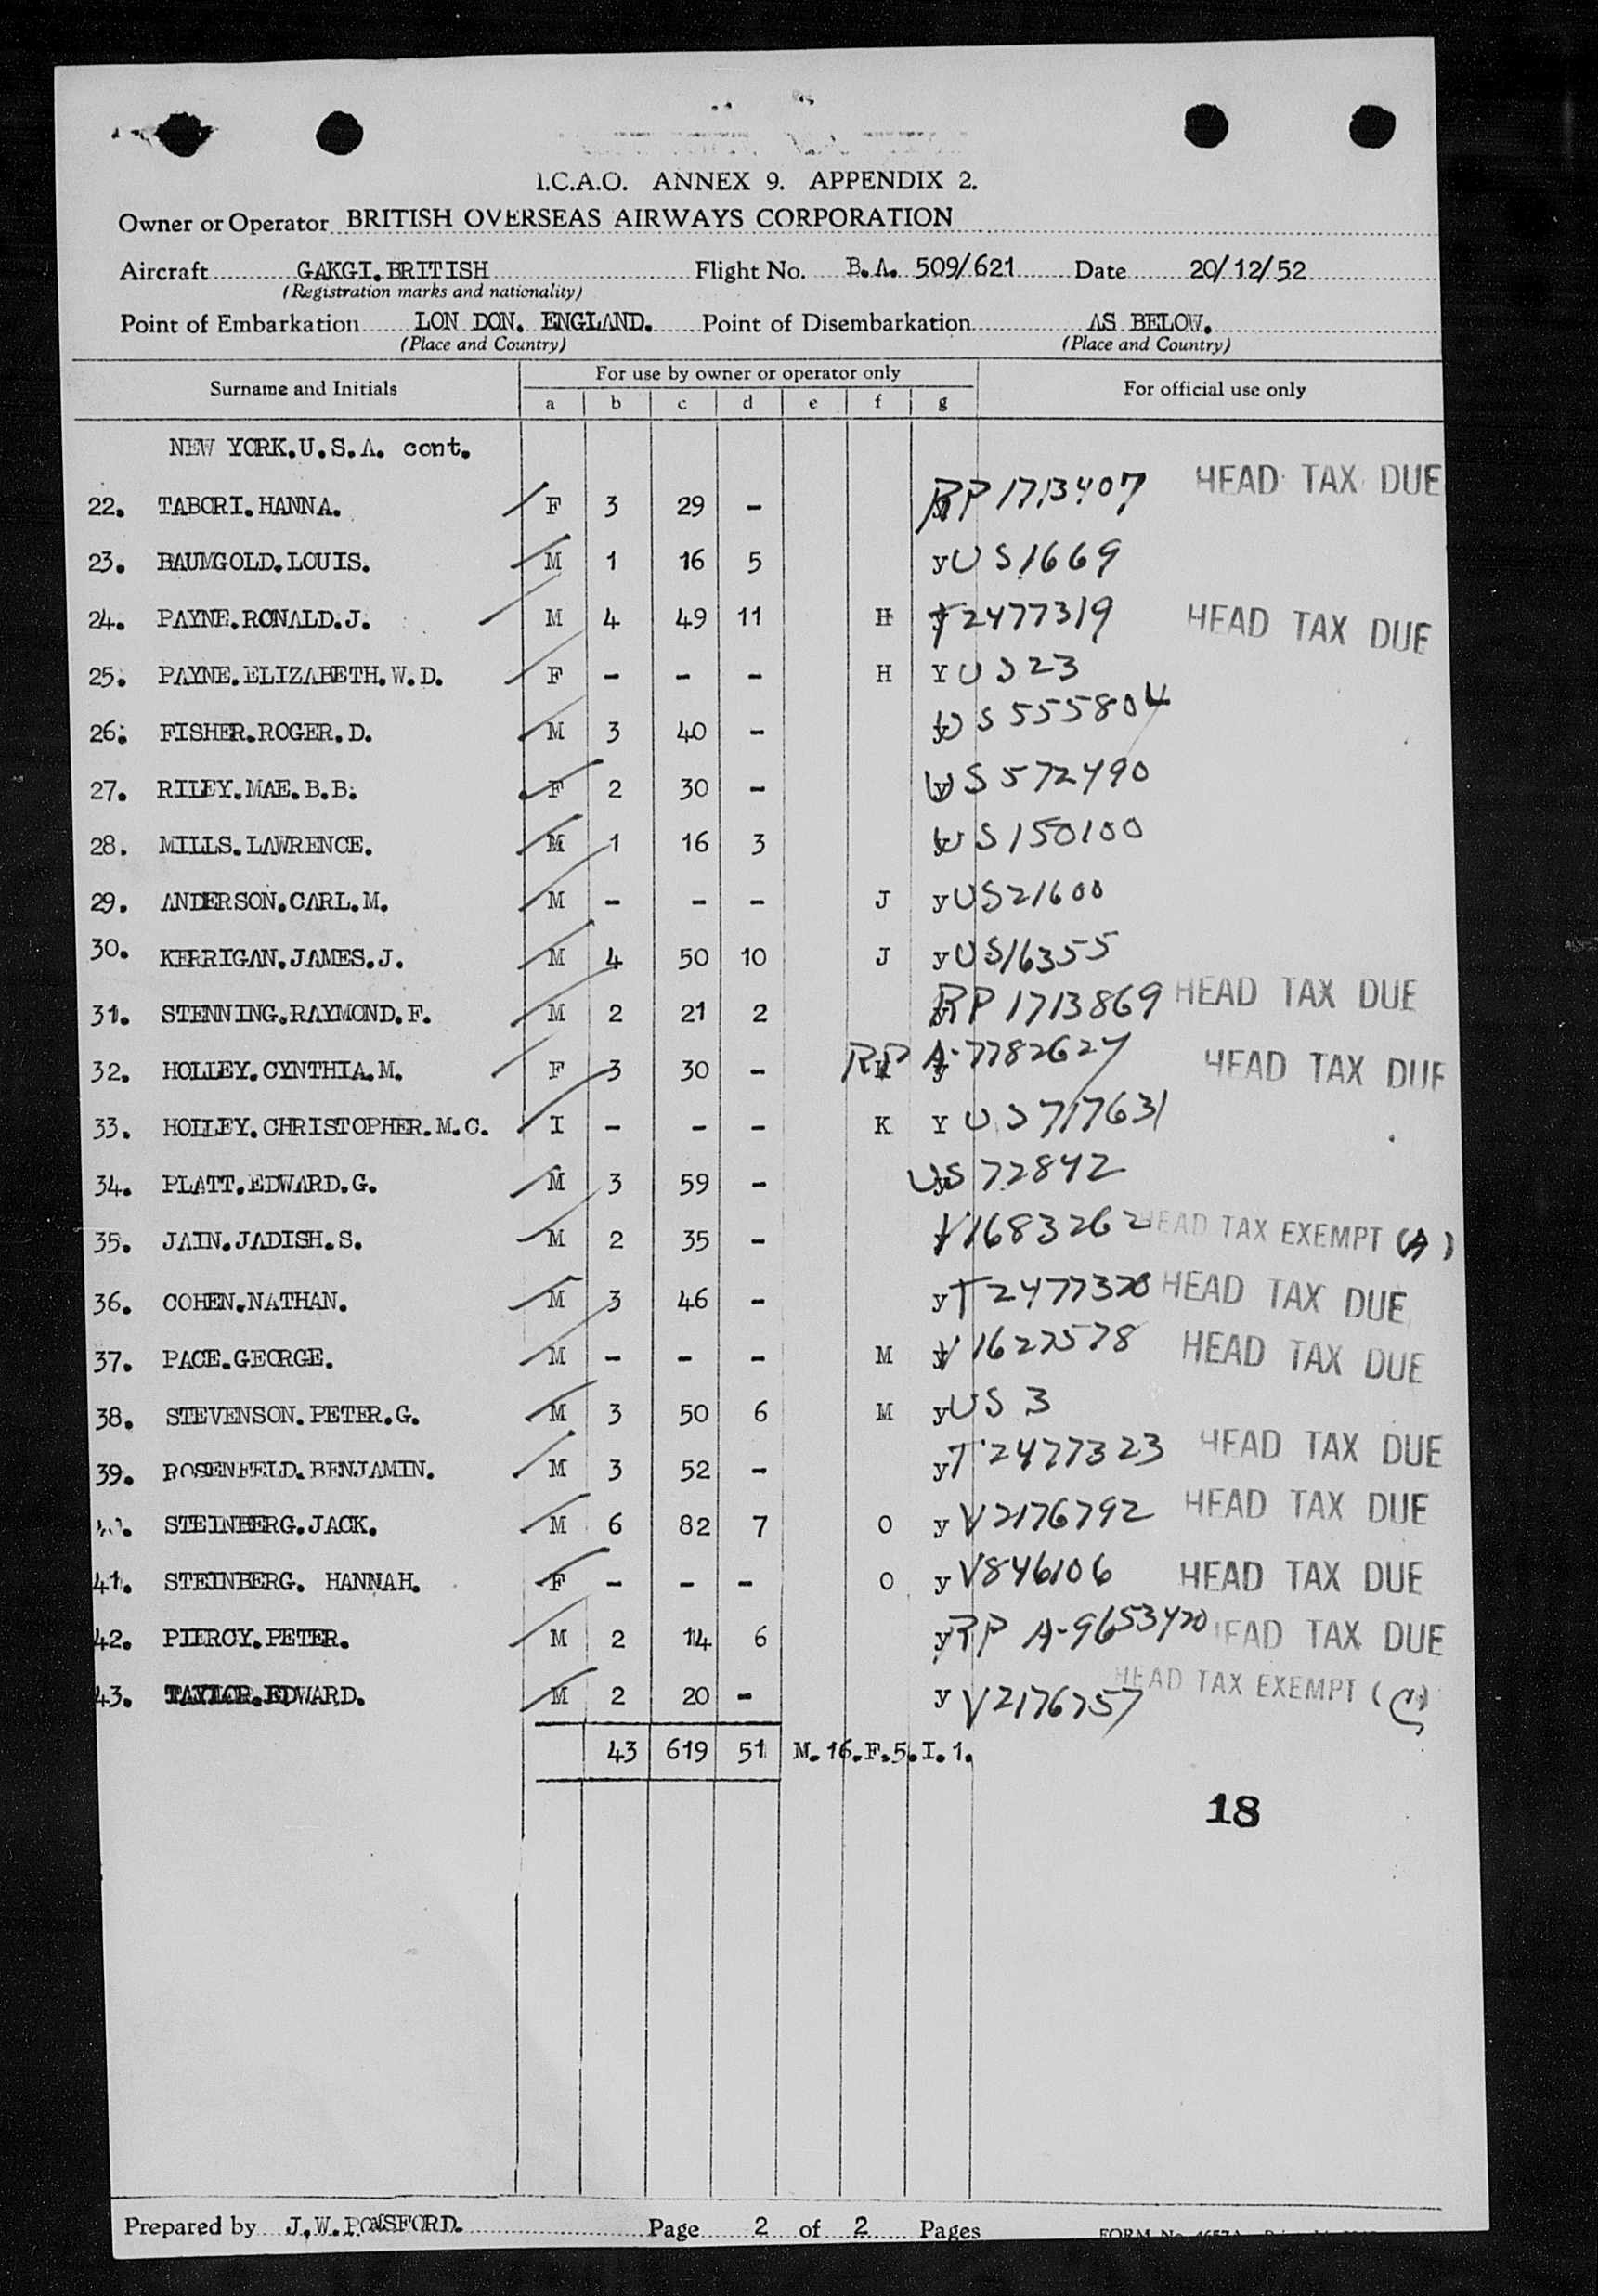 I.C.A.O. ANNEX 9. APPENDIX 2.
Owner or Operator BRITISH OVERSEAS AIRWAYS CORPORATION
Aircraft GAKGI.BRITISH Flight No. B.A. 509/621 Date 20/12/52
(Registration marks and nationality)
Point of Embarkation LON DON. ENGLAND. Point of Disembarkation AS BELOW.
(Place and Country) (Place and Country)
Surname and Initials For use by owner or operator only For official use only
a b c d e f g
NEW YORK.U.S.A. cont.
22. TABORI.HANNA. F 3 29 - RP 1713407 HEAD TAX DUE
23. BAUMGOLD.LOUIS. M 1 16 5 y US 1669
24. PAYNE.RONALD.J. M 4 49 11 H T2477319 HEAD TAX DUE
25. PAYNE.ELIZABETH.W.D. F - - - H Y US 23
26. FISHER.ROGER.D. M 3 40 - y US 555804
27. RILEY.MAE.B.B. F 2 30 - y US 572490
28. MILLS.LAWRENCE. M 1 16 3 y US 150100
29. ANDERSON.CARL.M. M - - - J y US 21600
30. KERRIGAN.JAMES.J. M 4 50 10 J y US 16355
31. STENNING.RAYMOND.F. M 2 21 2 y RP 1713869 HEAD TAX DUE
32. HOLLEY.CYNTHIA.M. F 3 30 - K y RP A-7782627 HEAD TAX DUE
33. HOLLEY.CHRISTOPHER.M.C. I - - - K Y US 717631
34. PLATT.EDWARD.G. M 3 59 - y US 72842
35. JAIN.JADISH.S. M 2 35 - y V1683262 HEAD TAX EXEMPT (A)
36. COHEN.NATHAN. M 3 46 - y T2477320 HEAD TAX DUE
37. PACE.GEORGE. M - - - M y V1627578 HEAD TAX DUE
38. STEVENSON.PETER.G. M 3 50 6 M y US 3
39. ROSENFELD.BENJAMIN. M 3 52 - y T2477323 HEAD TAX DUE
40. STEINBERG.JACK. M 6 82 7 O y V2176792 HEAD TAX DUE
41. STEINBERG. HANNAH. F - - - O y V846106 HEAD TAX DUE
42. PIERCY.PETER. M 2 14 6 y RP A-9653420 HEAD TAX DUE
43. TAYLOR.EDWARD. M 2 20 - y V2176757 HEAD TAX EXEMPT (C)
43 619 51 M.16.F.5.I.1.
18
Prepared by J.W.PONSFORD. Page 2 of 2 Pages FORM No.